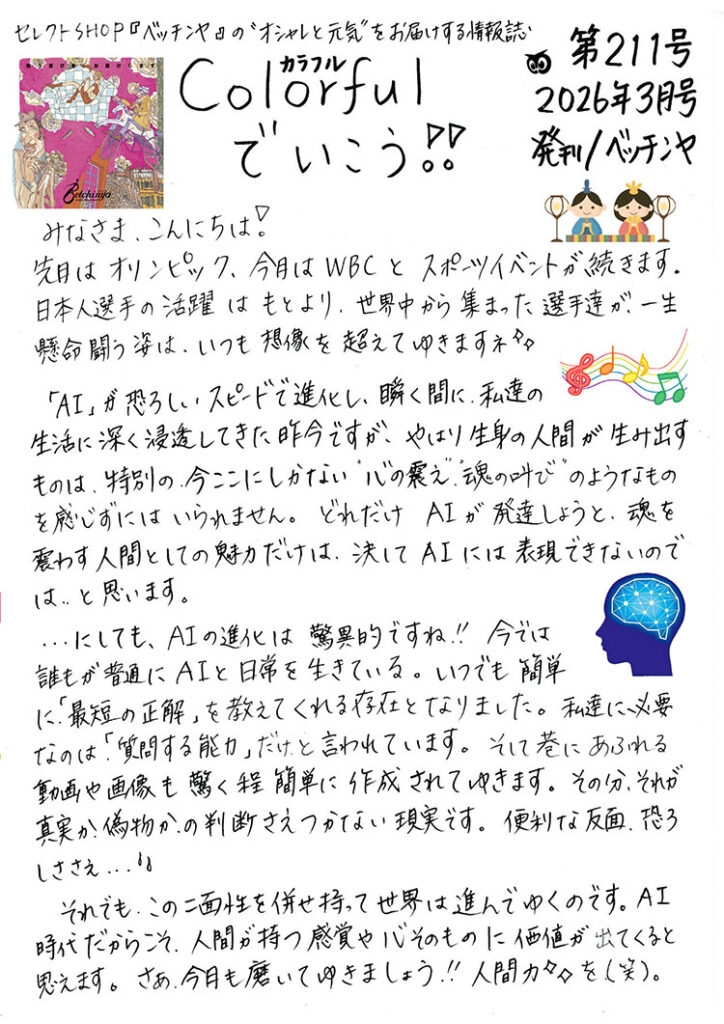 セレクトSHOP『ベッチンヤ』の"オシャレと元気"をお届けする情報誌
カラフル
Colorful
でいこう!!
第211号
2026年3月号
発刊/ベッチンヤ
Betchinya
みなさま、こんにちは!
先月はオリンピック、今月はWBCとスポーツイベントが続きます。
日本人選手の活躍はもとより、世界中から集まった選手達が、一生
懸命闘う姿は、いつも想像を超えてゆきますネ
「AI」が恐ろしいスピードで進化し、瞬く間に、私達の
生活に深く浸透してきた昨今ですが、やはり生身の人間が生み出す
ものは、特別の、今ここにしかない"心の震え""魂の叫び"のようなもの
を感じずにはいられません。どれだけAIが発達しようと、魂を
震わす人間としての魅力だけは、決してAIには表現できないので
は‥と思います。
…にしても、AIの進化は驚異的ですね!!今では
誰もが普通にAIと日常を生きている。いつでも簡単
に「最短の正解」を教えてくれる存在となりました。私達に必要
なのは「質問する能力」だけ、と言われています。そして巷にあふれる
動画や画像も驚く程簡単に作成されてゆきます。その分、それが
真実か、偽物か、の判断さえつかない現実です。便利な反面、恐ろ
しささえ…
それでも、この二面性を併せ持って世界は進んでゆくのです。AI
時代だからこそ、人間が持つ感覚や心そのものに価値が出てくると
思えます。さあ、今月も磨いてゆきましょう!!人間力を(笑)。